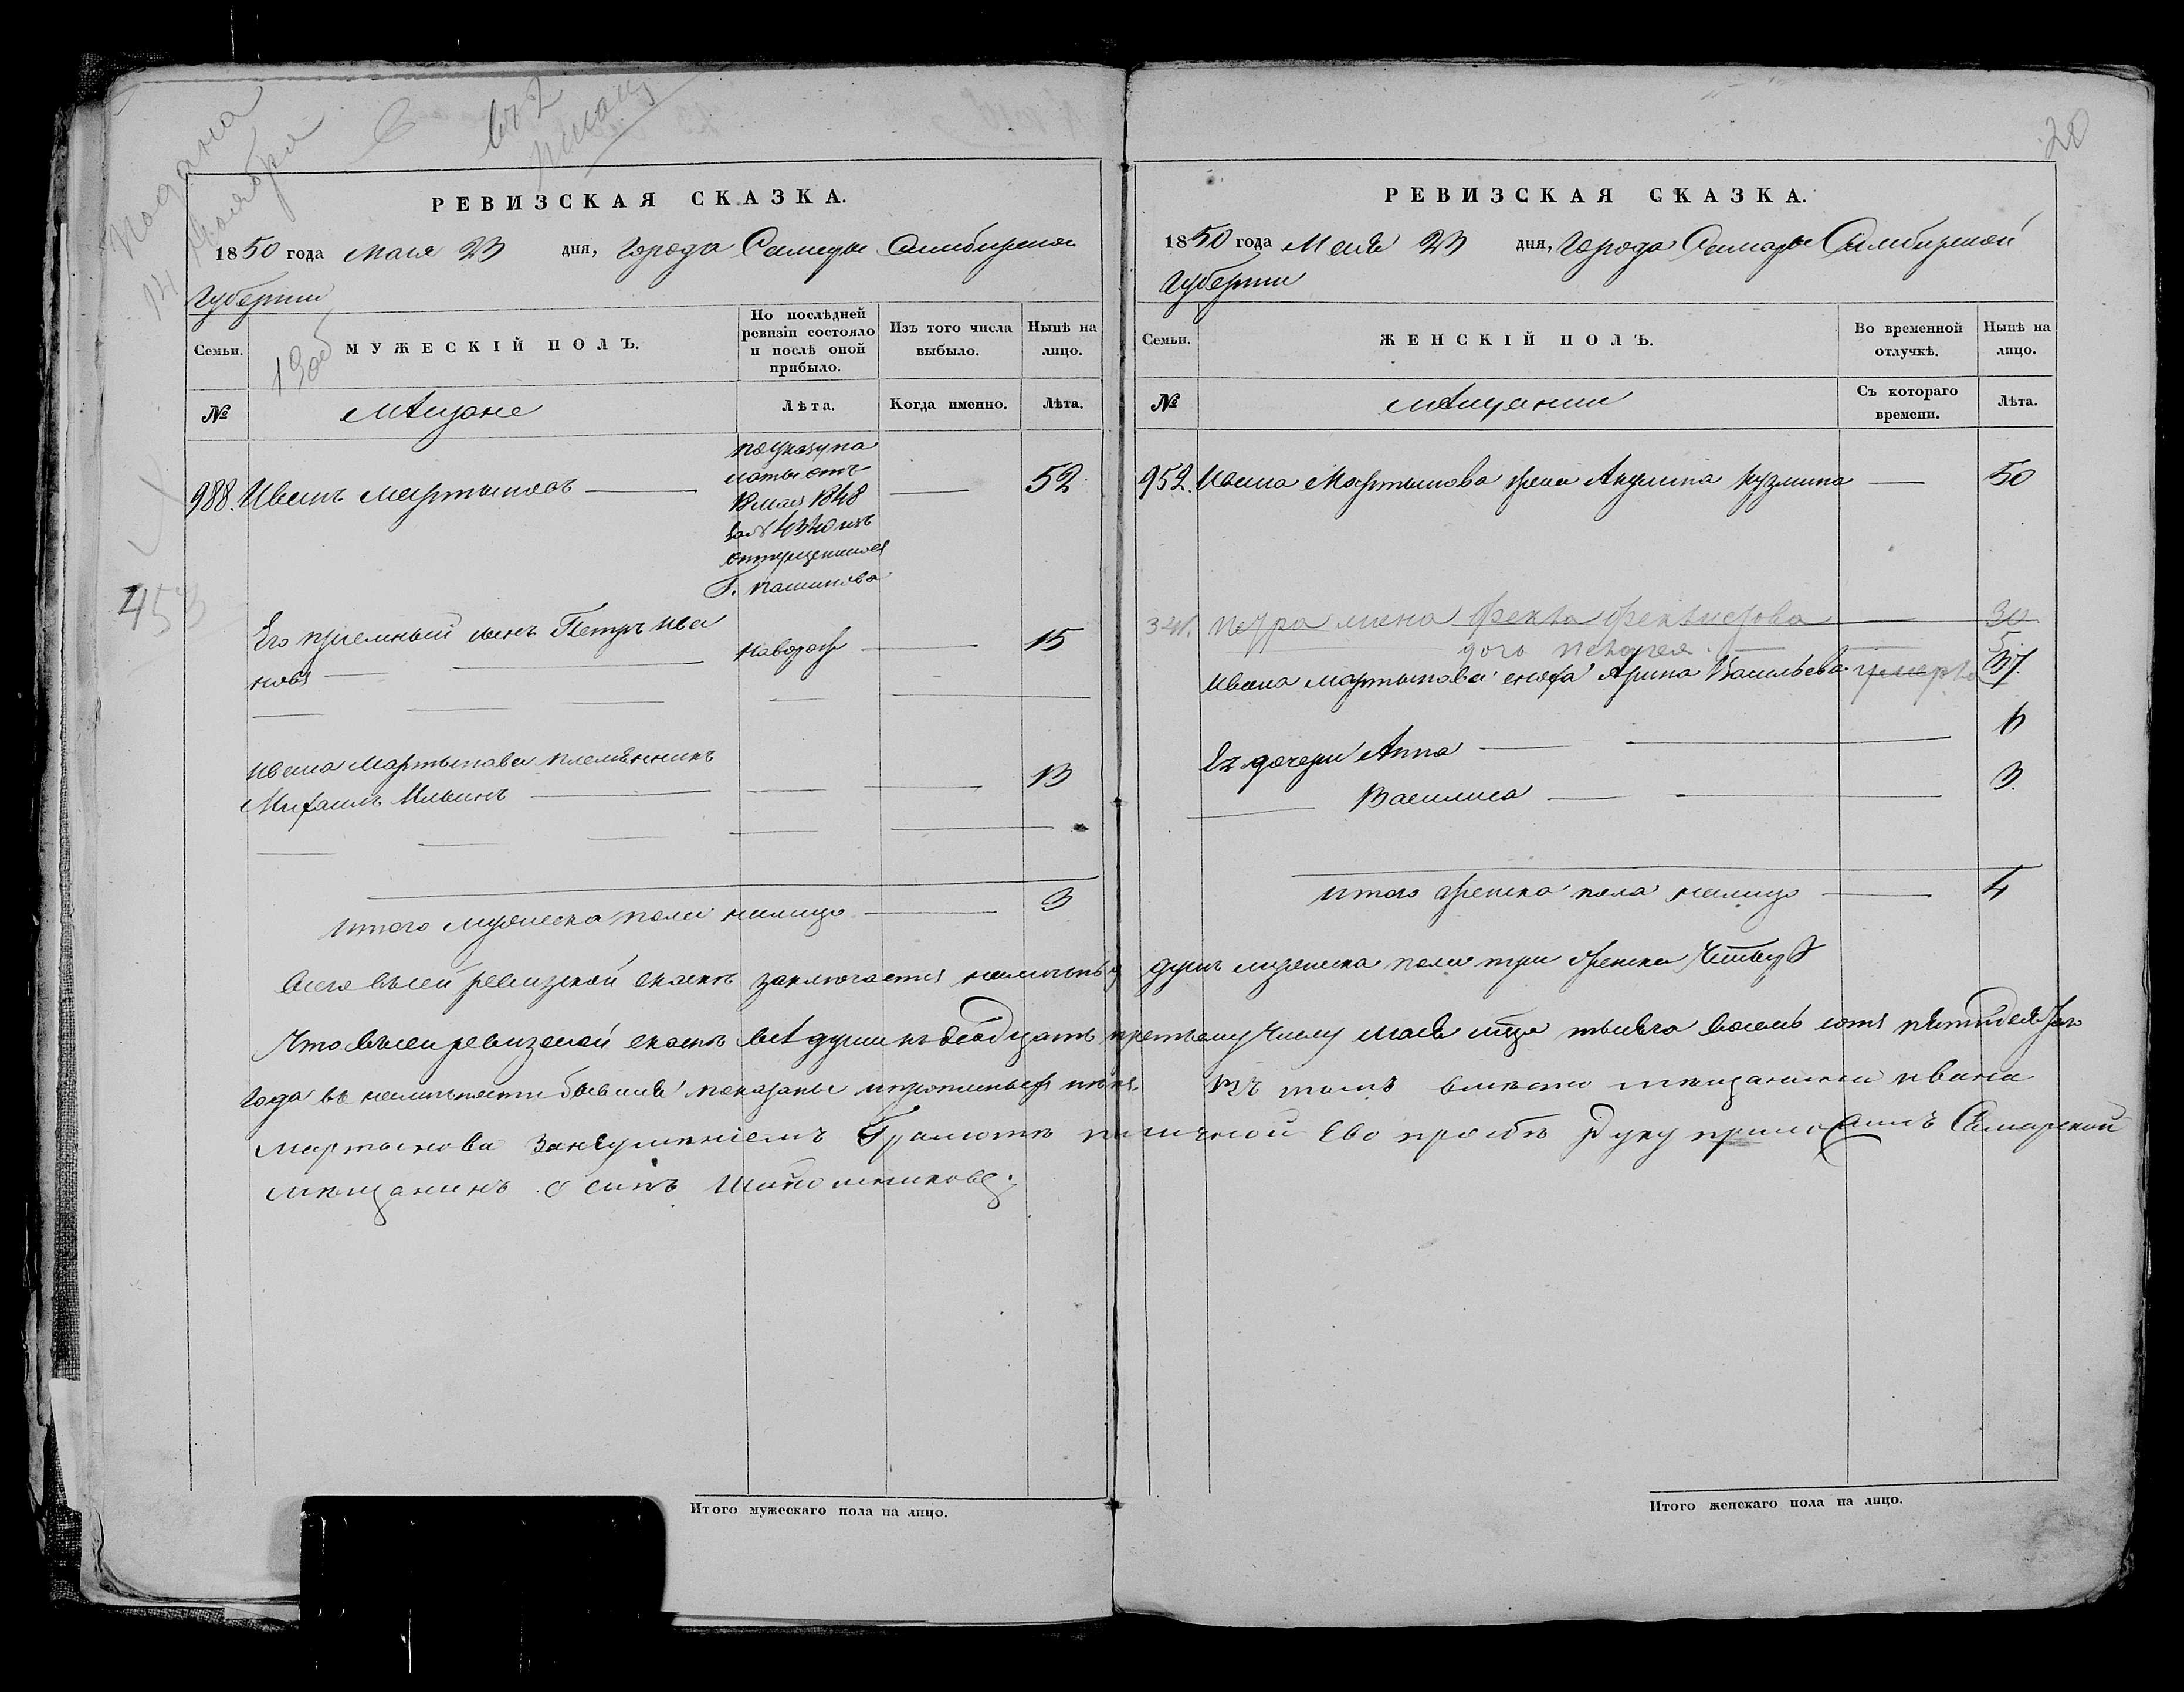 Подана
14 ноября
въ 2
РЕВИЗСКАЯ СКАЗКА.
1850 года Маия 23 дня, Города Самары Симбирской
Губернии
Семьи.
МУЖЕСКІЙ ПОЛЪ.
По послѣдней ревизіи состояло и послѣ оной прибыло.
Изъ того числа выбыло.
Нынѣ на лицо.
№
Мѣщане
Лѣта.
Когда именно.
Лѣта.
988. Иванъ Мартыновъ
по указу па
латы отъ
13 мая 1848
за № 4340 изъ
отпущенныхъ
Г. Пашкова
52
453
Его приемный сынъ Петръ Ива
новъ
новорож
15
Ивана Мартынова племянникъ
Михаилъ Ильинъ
13
Итого мужеска пола налицо 3
Итого мужескаго пола на лицо.
20
РЕВИЗСКАЯ СКАЗКА.
1850 года Маия 23 дня, Города Самары Симбирской
Губернии
Семьи.
ЖЕНСКІЙ ПОЛЪ.
Во временной отлучкѣ.
Нынѣ на лицо.
№
Мѣщанки
Съ котораго времени.
Лѣта.
952. Ивана Мартынова жена Акулина Кузмина 50
Петра жена Фекла 30
дочь Пелагея 5
Ивана Мартынова сноха Арина Васильева умерла 37.
Ея дочери Анна 6
Василиса 3.
Итого женска пола налицо 4
Всего въсей ревизской сказкѣ заключается наличныхъ душъ мужеска пола три женска Четыре
Что въсей ревизской сказкѣ всѣ души къ двадцать третьему числу маия м-ца тысеча восемь сотъ пятидесятаго
года въ наличности бывшия показаны и прописныхъ нѣтъ. Въ томъ вместо мещанина Ивана
Мартынова занеумениемъ Грамоте и личной Ево прозбе Руку приложилъ Самарской
мещанинъ Осипъ
Итого женскаго пола на лицо.